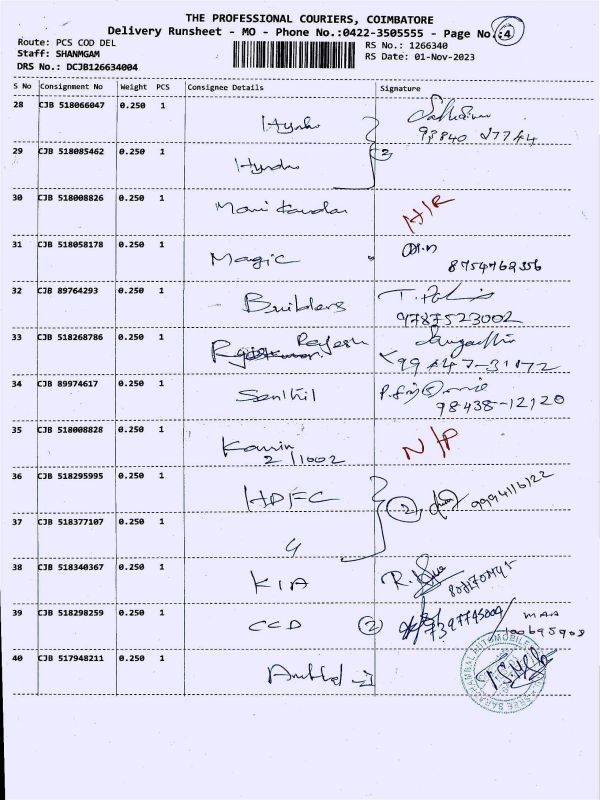 THE PROFESSIONAL COURIERS, COIMBATORE
Delivery Runsheet - MO - Phone No.:0422-3505555 - Page No.:4
Route: PCS COD DEL
Staff: SHANMGAM
DRS No.: DCJB126634004
RS No.: 1266340
RS Date: 01-Nov-2023
S No Consignment No Weight PCS Consignee Details Signature
28 CJB 518066047 0.250 1
29 CJB 518085462 0.250 1
2
30 CJB 518008826 0.250 1
31 CJB 518058178 0.250 1 Magic
8754762356
32 CJB 89764293 0.250 1 Builders
9787523002
33 CJB 518268786 0.250 1 Rajesh
34 CJB 89974617 0.250 1 Senthil
98438-12120
35 CJB 518008828 0.250 1 N/P
2/1002
36 CJB 518295995 0.250 1 HDFC 2 9994116122
37 CJB 518377107 0.250 1
38 CJB 518340367 0.250 1 KIA
39 CJB 518298259 0.250 1 CCD 2
40 CJB 517948211 0.250 1